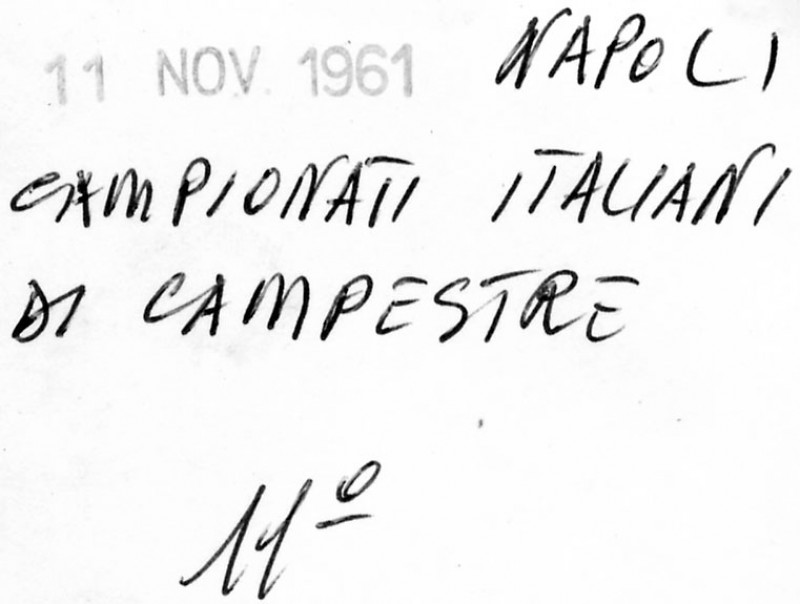 11 NOV. 1961 NAPOLI
CAMPIONATI ITALIANI
DI CAMPESTRE
11º